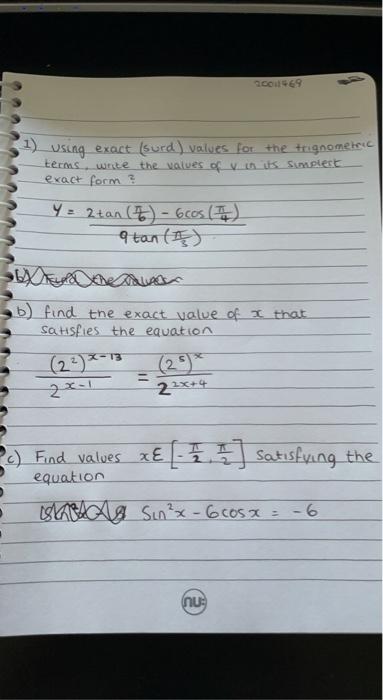 20011469
1) Using exact (surd) values for the trignometric
terms, write the values of y in its simplest
exact form ?
y = 2tan(π/6) - 6cos(π/4) / 9tan(π/3)
b) find the exact value of x that
satisfies the equation
(2²)^(x-13) / 2^(x-1) = (2⁵)^x / 2^(2x+4)
c) Find values xε[-π/2, π/2] satisfying the
equation
Sin²x - 6cosx = -6
nu: